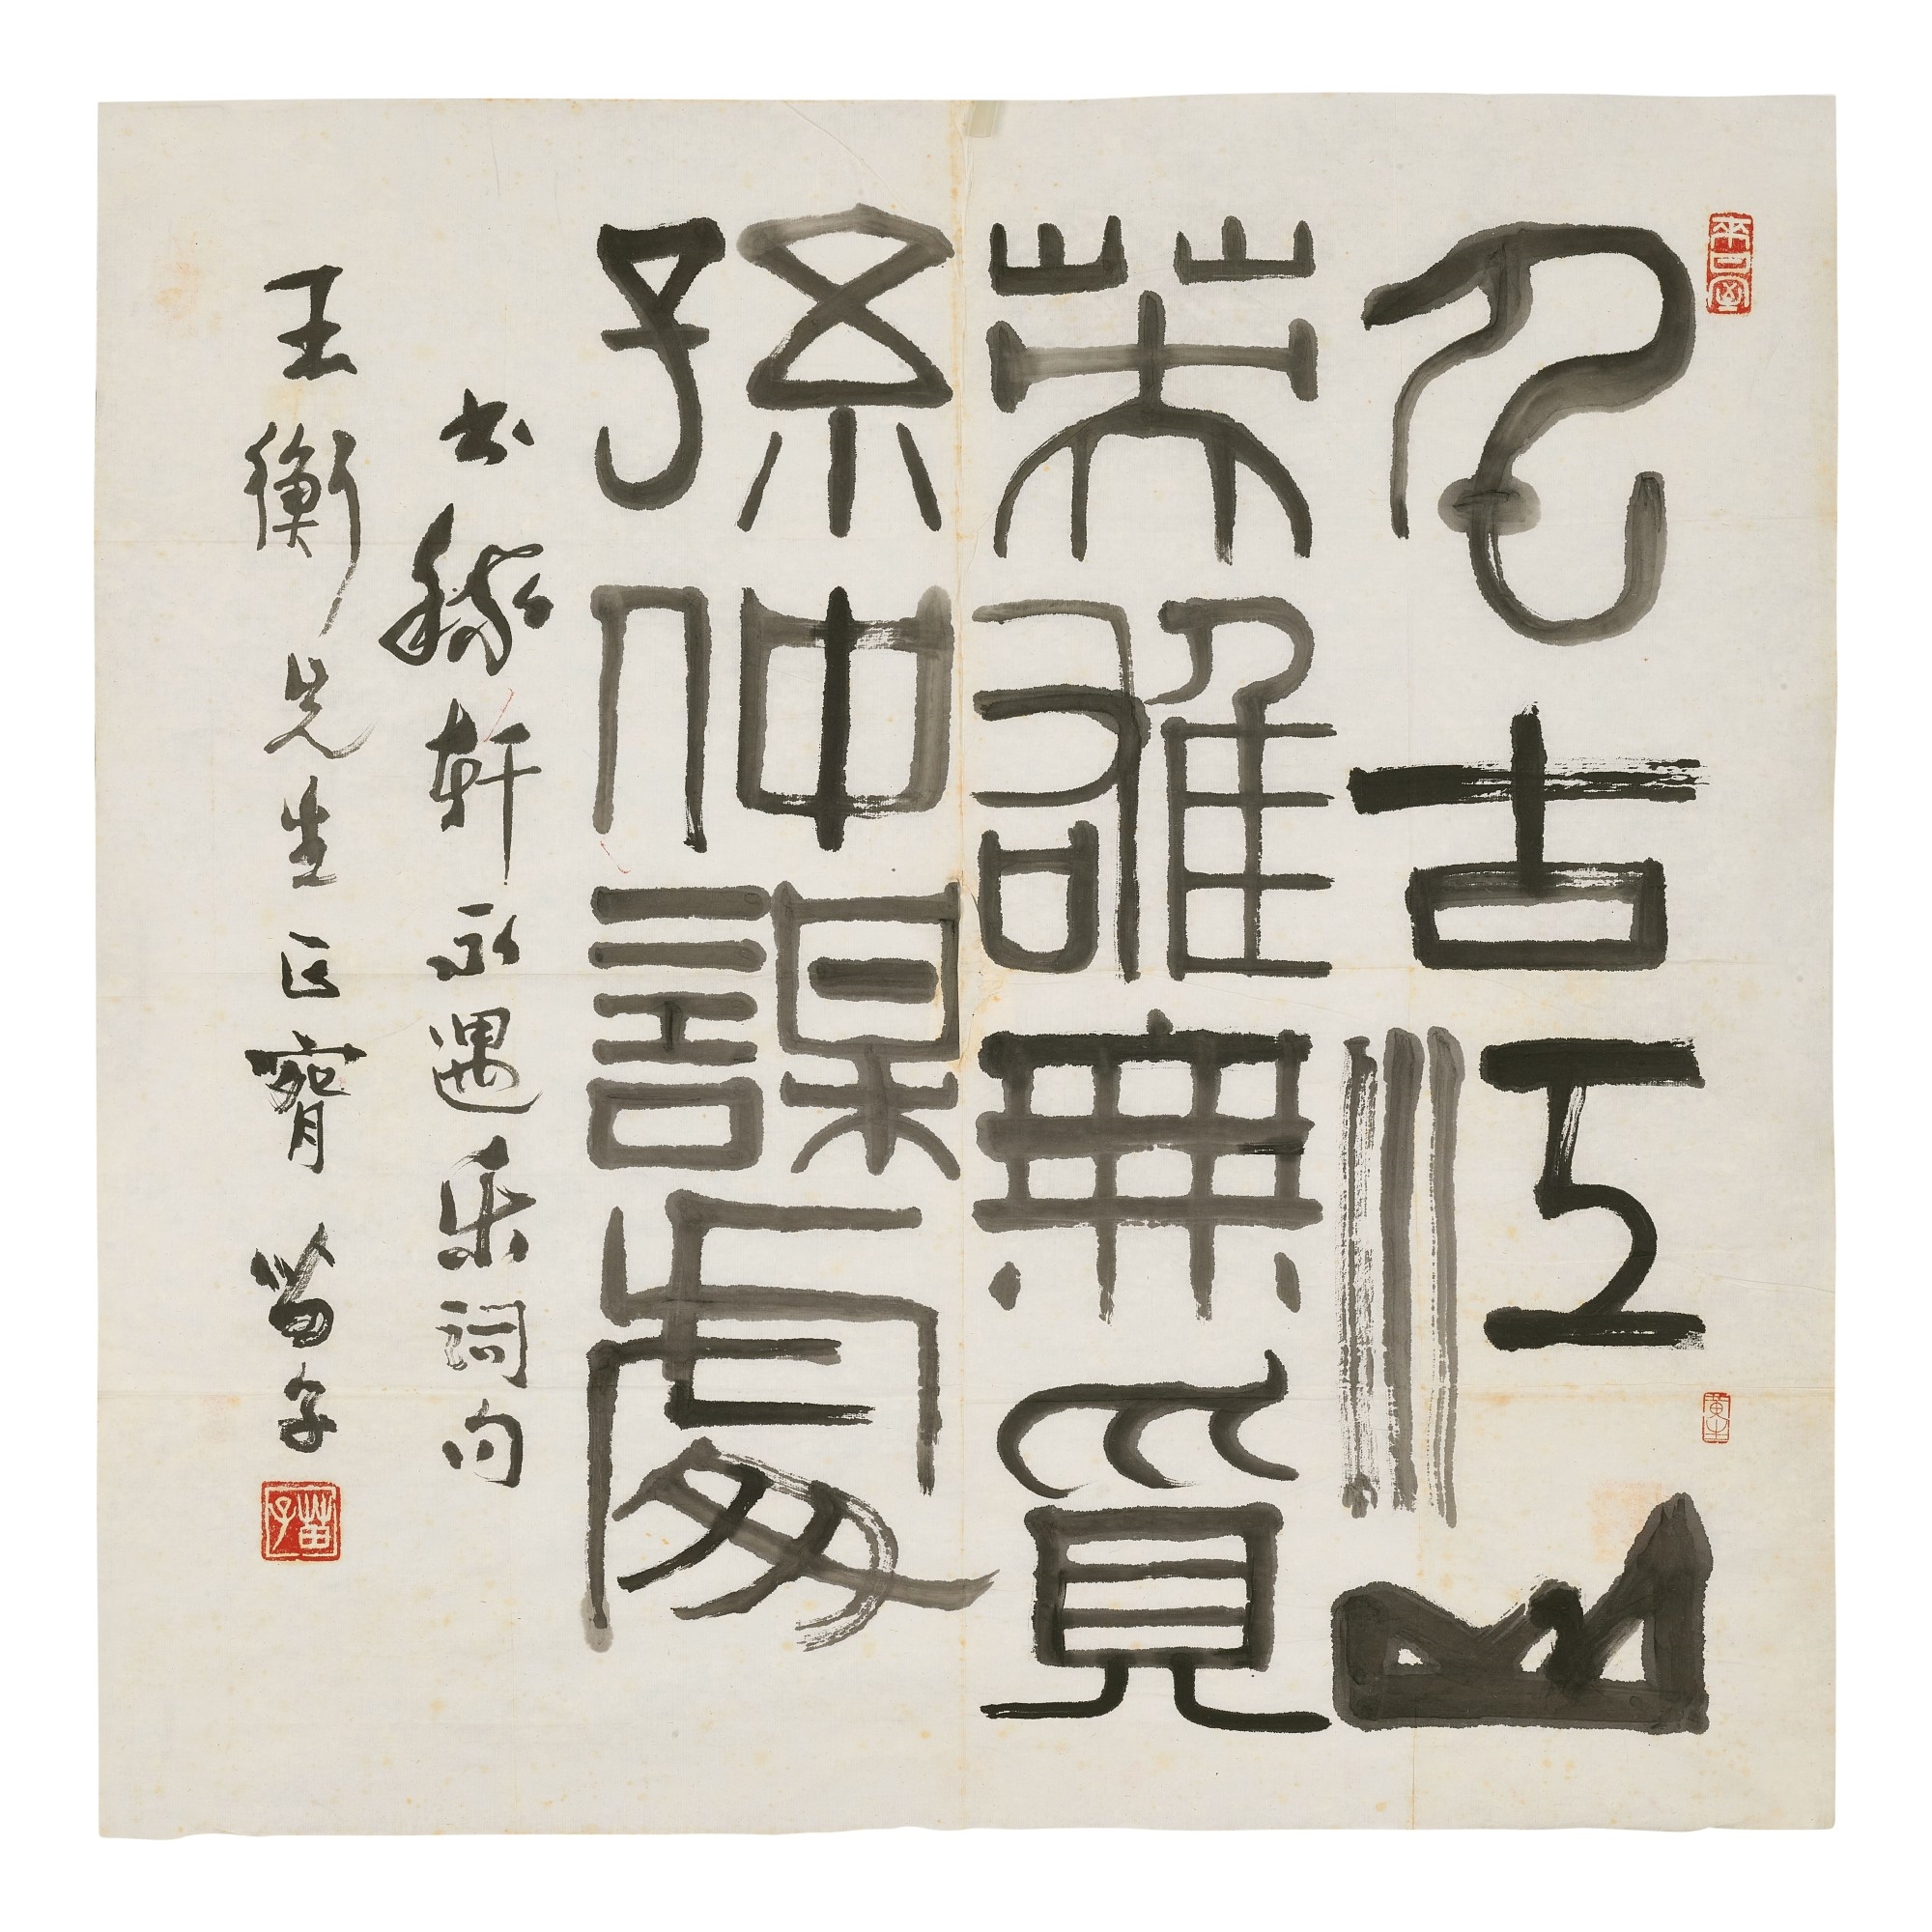 千古江山
英雄無覓
孫仲謀處
书稼軒永遇乐詞句
王衡先生正腕 苗子
苗子